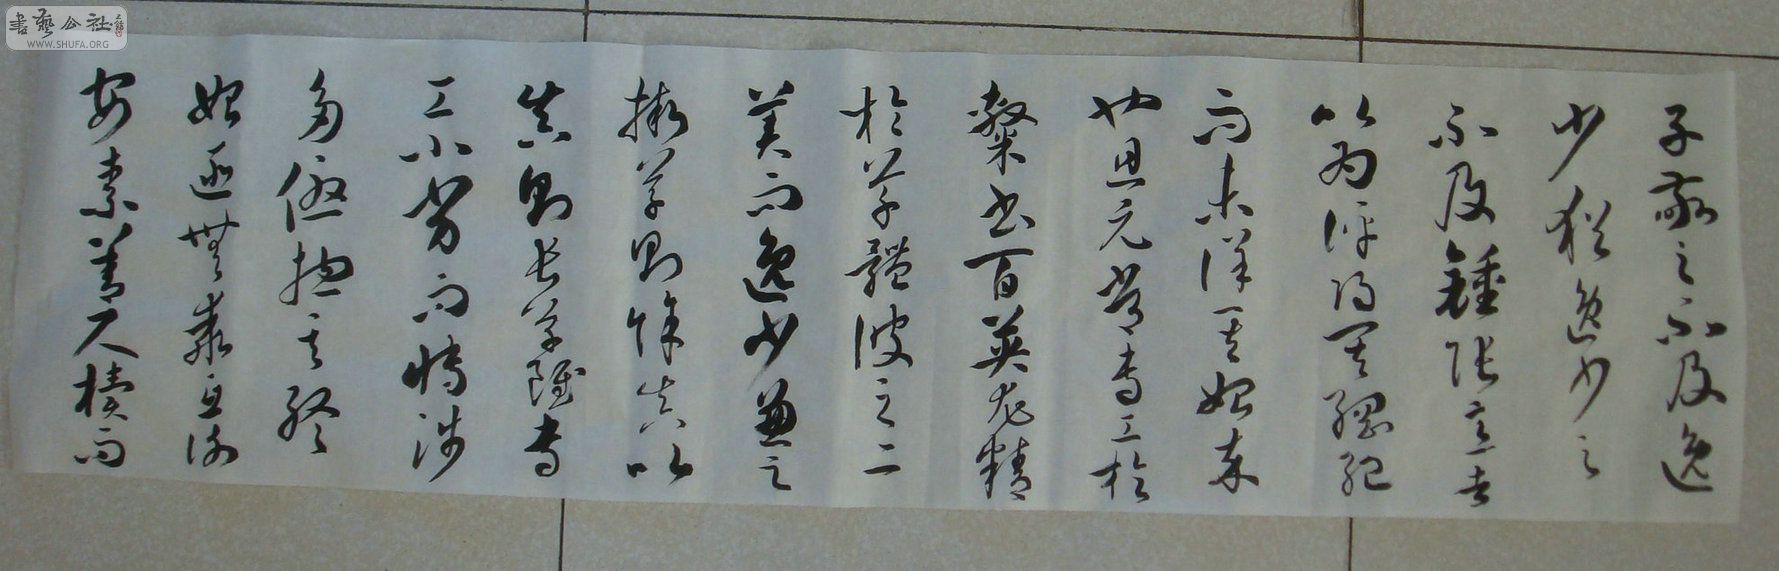 書藝公社
WWW.SHUFA.ORG
子敬之不及逸
少猶逸少之
不及鍾張意者
以為評得其綱紀
而未詳其始卒
也且元常專工於
隸書百英尤精
於草體彼之二
美而逸少兼之
擬草則餘真比
真則長草雖專
工小劣而博涉
多優揔其終
始匪無乖互謝
安素善尺櫝而